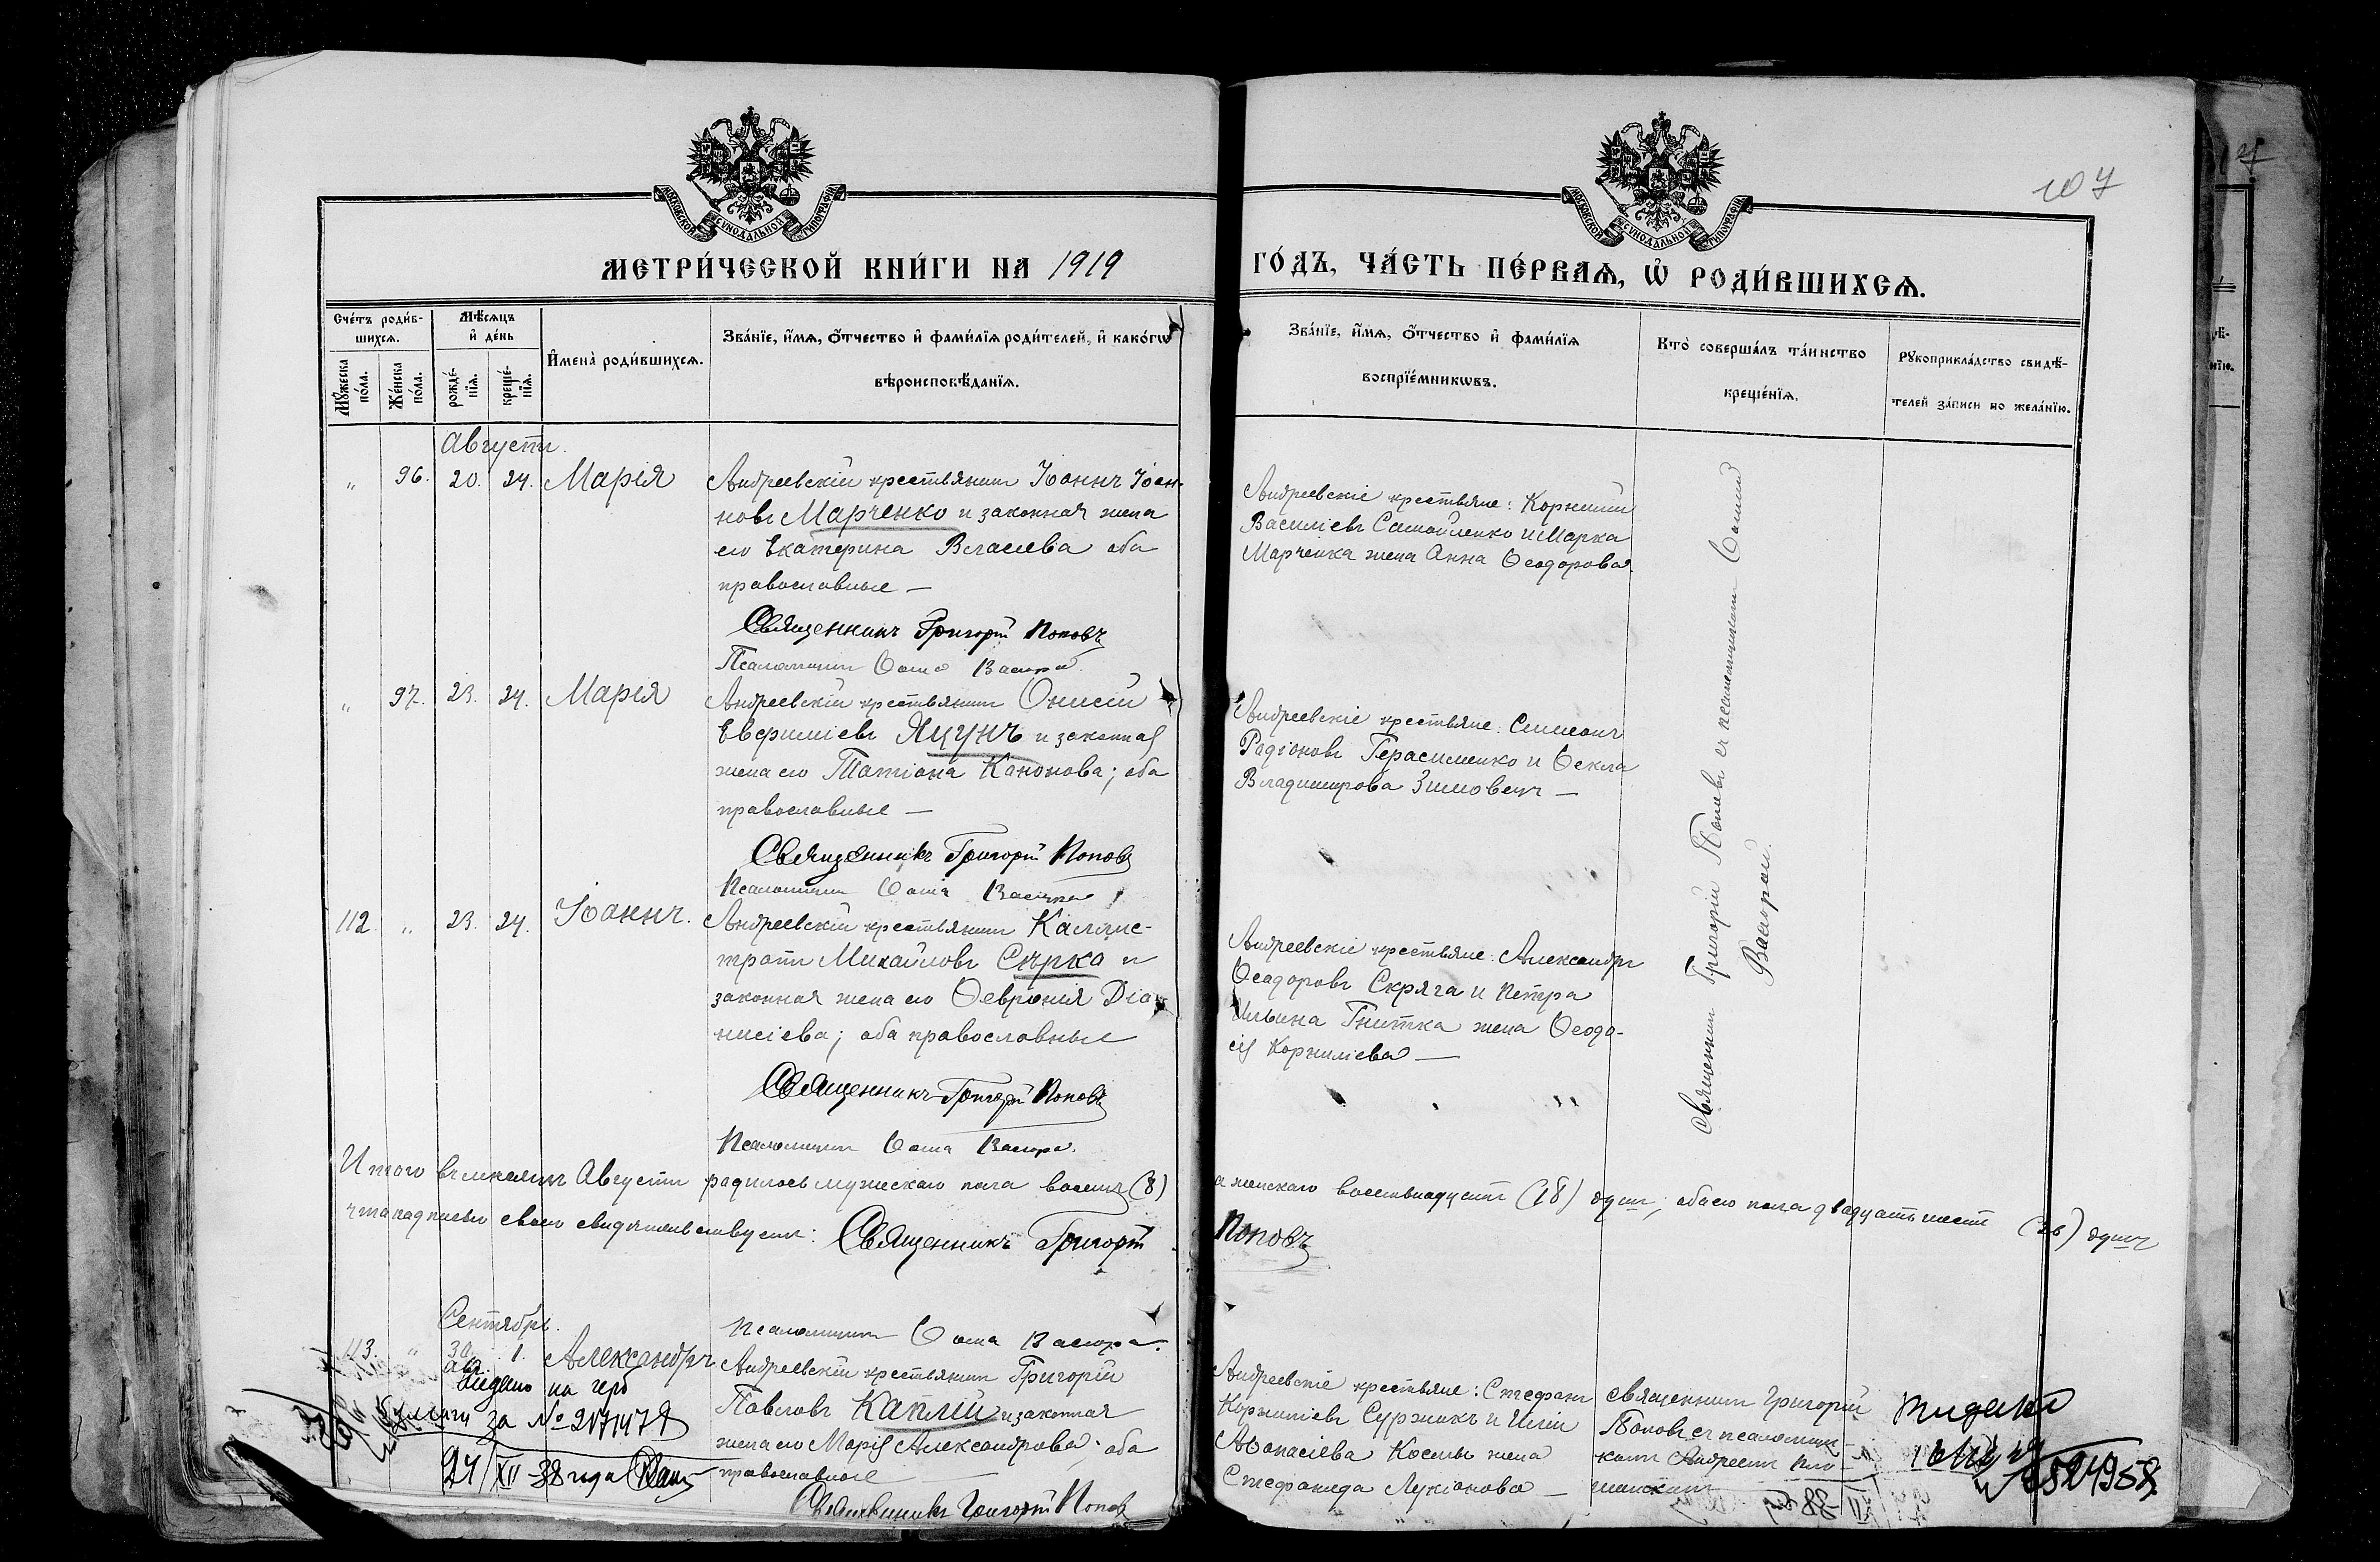 107
МОСКОВСКОЙ СѴНОДАЛЬНОЙ ТИПОГРАФІИ
МОСКОВСКОЙ СѴНОДАЛЬНОЙ ТИПОГРАФІИ
МЕТРИ́ЧЕСКОЙ КНИ́ГИ НА 1919
ГО́ДЪ, ЧА́СТЬ ПЕ́РВАѦ, Ѡ҆ РОДИ́ВШИХСѦ.
Сче́тъ роди́в-
шихсѧ.
Мꙋ́жеска по́ла.
Же́нска по́ла.
Мѣ́сѧцъ
и҆ де́нь
рожде́-
нїѧ.
креще́-
нїѧ.
И҆мена̀ роди́вшихсѧ.
Зва́нїе, и҆́мѧ, ѻ҆́тчество и҆ фами́лїѧ роди́телей, и҆ како́гѡ
вѣроисповѣ́данїѧ.
Зва́нїе, и҆́мѧ, ѻ҆́тчество и҆ фами́лїѧ
воспрїе́мникѡвъ.
Кто̀ соверша́лъ та́инство
креще́нїѧ.
Рꙋкоприкла́дство свидѣ́-
телей за́писи по жела́нїю.
Августъ.
" 96. 20. 24. Марія
Андреевскій крестьянинъ Іоаннъ Іоан-
новъ Марченко и законная жена
его Екатерина Власіева оба
православные —
Священникъ Григорій Поповъ
Псаломщикъ Ѳома Вакора
Андреевскіе крестьяне: Корнилій
Василіевъ Самойленко и Марка
Марченка жена Анна Ѳеодорова.
" 97. 23. 24. Марія
Андреевскій крестьянинъ Онисій
Евфиміевъ Яцунъ и законная
жена его Татіана Канонова; оба
православные —
Священникъ Григорій Поповъ
Псаломщикъ Ѳома
Андреевскіе крестьяне: Симеонъ
Радіоновъ Герасименко и Ѳекла
Владимирова Зимовецъ —
112 " 23. 24. Іоаннъ.
Андреевскій крестьянинъ Каллис-
тратъ Михайловъ Сѣрко и
законная жена его Ѳевронія Діо-
нисіева; оба православные
Священникъ Григорій Поповъ
Псаломщикъ Ѳома
Андреевскіе крестьяне: Александръ
Ѳеодоровъ Скряга и Петра
Ильина Гнитка жена Ѳеодо-
сія Корниліева —
Священникъ Григорій Поповъ съ псаломщикомъ Ѳомой
Итого въ мѣсяцѣ Августѣ родилось мужескаго пола восемь (8)
а женскаго восемнадцать (18) душъ; обоего пола двадцать шесть (26) душъ
что подписью своею свидѣтельствуемъ: Священникъ Григорій
Поповъ
Псаломщикъ Ѳома
Сентябрь.
113. " 30 1. Александръ
авг.
Андреевскій крестьянинъ Григорій
Павловъ Каплій и законная
жена его Марія Александрова; оба
православные —
Священникъ Григорій Поповъ
Андреевскіе крестьяне: Стефанъ
Корниліевъ Суржикъ и Иліи
Аѳанасіева Косты жена
Стефанида Лукіанова —
священникъ Григорій
Поповъ съ псаломщи-
комъ Андреемъ
Видано на герб
за №
24/XII-38 года
Видано